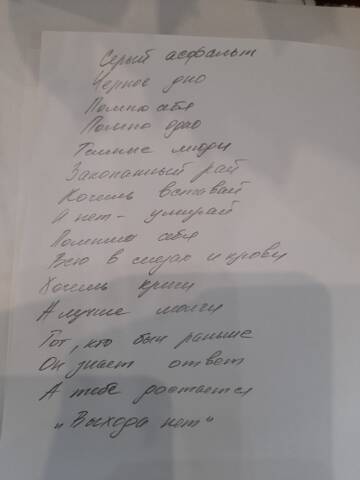 Серый асфальт
Черное дно
Помню себя
Помню одно
Темные люди
Закопанный рай
Хочешь вставай
А нет - умирай
Помнишь себя
Всю в слезах и крови
Хочешь кричи
А лучше молчи
Тот, кто был раньше
Он знает ответ
А тебе достается
"Выхода нет"